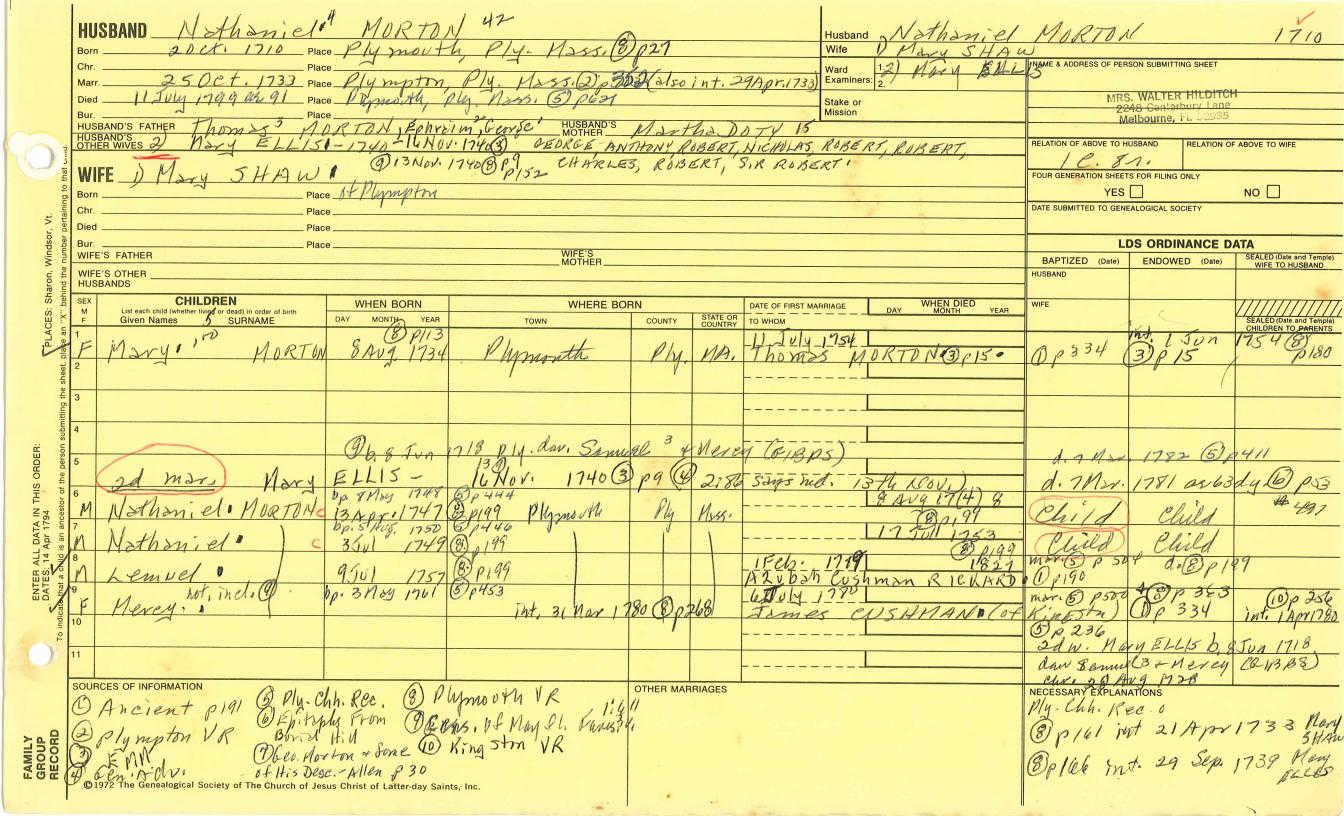 HUSBAND Nathaniel 4 MORTON 42
Born 2 Oct. 1710 Place Plymouth, Ply. Mass. (8) p27
Chr. Place
Marr. 25 Oct. 1733 Place Plympton, Ply. Mass. (2) p. (also int. 29 Apr. 1733)
Died 11 July 1799 ae 91 Place Plymouth, Ply. Mass. (5) p621
Bur. Place
HUSBAND'S FATHER Thomas 3 MORTON, Ephraim 2, George 1 HUSBAND'S MOTHER Martha DOTY 15
HUSBAND'S OTHER WIVES 2) Mary ELLIS - 1740 - 16 Nov. 1740 (3) GEORGE ANTHONY ROBERT, NICHOLAS, ROBERT, ROBERT,
(9) 13 Nov. 1740 (8) p9 p152 CHARLES, ROBERT, SIR ROBERT
Husband Nathaniel MORTON 1710
Wife 1) Mary SHAW
Ward Examiners: 1. 2) Mary ELLIS
2.
Stake or Mission
NAME & ADDRESS OF PERSON SUBMITTING SHEET
MRS. WALTER HILDITCH
2248 Canterbury Lane
Melbourne, FL 32935
RELATION OF ABOVE TO HUSBAND RELATION OF ABOVE TO WIFE
FOUR GENERATION SHEETS FOR FILING ONLY
YES NO
DATE SUBMITTED TO GENEALOGICAL SOCIETY
WIFE 1) Mary SHAW
Born Place of Plympton
Chr. Place
Died Place
Bur. Place
WIFE'S FATHER WIFE'S MOTHER
WIFE'S OTHER HUSBANDS
LDS ORDINANCE DATA
BAPTIZED (Date) ENDOWED (Date) SEALED (Date and Temple) WIFE TO HUSBAND
HUSBAND
WIFE
SEALED (Date and Temple) CHILDREN TO PARENTS
SEX M F CHILDREN WHEN BORN WHERE BORN DATE OF FIRST MARRIAGE WHEN DIED
List each child (whether living or dead) in order of birth
Given Names 5 SURNAME DAY MONTH YEAR TOWN COUNTY STATE OR COUNTRY TO WHOM DAY MONTH YEAR
(8) p113
1 F Mary MORTON 8 Aug 1734 Plymouth Ply. MA. 11 July 1754 Thomas MORTON (3) p15 (1) p334 int. 1 Jun 1754 (8) p180 (3) p15
2
3
4
(9) b. 8 Jun 1718 Ply. dau. Samuel 3 & Mercy (GIBBS) d. 7 Mar. 1782 (5) p411
5 2d mar. Mary ELLIS - 16 Nov. 1740 (3) p9 (4) 2:86 says md. 13th (Nov.) d. 7 Mar. 1781 ae 63dy (6) p53 # 497
bp. 8 May 1748 (5) p444 8 Aug 17(4)8
6 M Nathaniel MORTON c 13 Apr. 1747 (8) p199 Plymouth Ply Mass. (8) p199 Child Child
bp. 5 Aug. 1750 (5) p446 17 Jul 1753
7 M Nathaniel c 3 Jul 1749 (8) p199 (8) p199 Child Child
1 Feb. 1827 mar. (5) p504 d. (8) p199
8 M Lemuel 9 Jul 1757 (8) p199 Azubah Cushman RICKARD (1) p190
not incl. (9) bp. 3 May 1761 (5) p453 6 July 1780 mar. (5) p500 & (8) p363 (10) p256
9 F Mercy int. 31 Mar 1780 (8) p268 James CUSHMAN (of Kingston) (1) p334 int. 1 Apr 1780
10 (5) p236
2d w. Mary ELLIS b. 8 Jun 1718
11 dau Samuel (3 & Mercy (GIBBS)
chr. 28 Aug 1728
SOURCES OF INFORMATION
(1) Ancient p191
(2) Plympton VR
(3) MM
(4) Gen. Adv.
(5) Ply. Chh. Rec.
(6) Epitaphs From Burial Hill
(7) Geo. Morton & Some of His Desc. - Allen p30
(8) Plymouth VR
(9) Gens. of Mayfl. Families 1:611
(10) Kingston VR
OTHER MARRIAGES
NECESSARY EXPLANATIONS
Ply. Chh. Rec.
(8) p161 int 21 Apr 1733 Mary SHAW
(8) p166 int. 29 Sep. 1739 Mary ELLIS
©1972 The Genealogical Society of The Church of Jesus Christ of Latter-day Saints, Inc.
FAMILY GROUP RECORD
ENTER ALL DATA IN THIS ORDER:
DATES: 14 Apr 1794
PLACES: Sharon, Windsor, Vt.
To indicate that a child is an ancestor of the person submitting the sheet, place an "X" behind the number pertaining to that child.